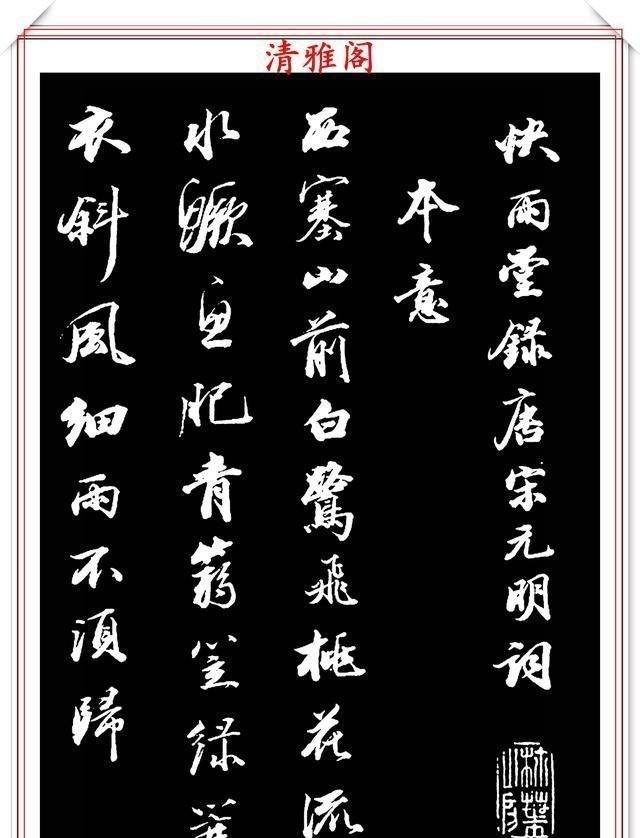 清雅阁
快雨堂録唐宋元明詞
本意
西塞山前白鷺飛桃花流
水鱖魚肥青篛笠緑簑
衣斜風細雨不須歸